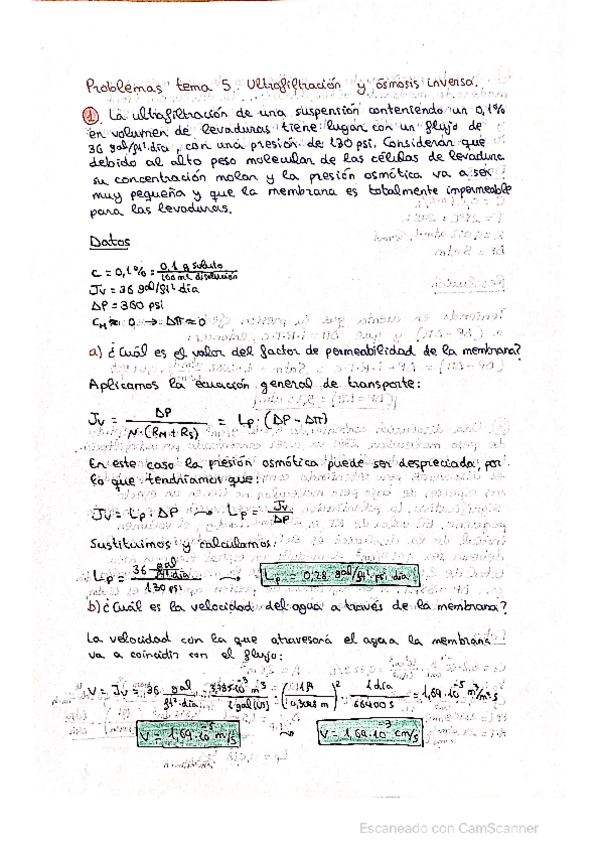 Problemas tema 5. Ultrafiltración y ósmosis inversa.
1 La ultrafiltración de una suspensión conteniendo un 0,1%
en volumen de levaduras tiene lugar con un flujo de
36 gal/ft² día, con una presión de 130 psi. Considerar que
debido al alto peso molecular de las células de levadura
su concentración molar y la presión osmótica va a ser
muy pequeña y que la membrana es totalmente impermeable
para las levaduras.
Datos
C = 0,1% = 0,1 g soluto / 100 ml disolución
Jv = 36 gal/ft² día
ΔP = 360 psi
CM ≈ 0 → ΔΠ ≈ 0
a) ¿Cuál es el valor del factor de permeabilidad de la membrana?
Aplicamos la ecuación general de transporte:
Jv = ΔP / N·(RM + RS) = Lp·(ΔP - ΔΠ)
En este caso la presión osmótica puede ser despreciada, por
lo que tendríamos que:
Jv = Lp·ΔP → Lp = Jv / ΔP
Sustituimos y calculamos:
Lp = 36 gal/ft² día / 130 psi → Lp = 0,28 gal/ft² psi día
b) ¿Cuál es la velocidad del agua a través de la membrana?
La velocidad con la que atravesará el agua la membrana
va a coincidir con el flujo:
V = Jv = 36 gal / ft² día · 3,785·10⁻³ m³ / 1 gal (US) · (1 ft / 0,3048 m)² · 1 día / 86400 s = 1,69·10⁻⁵ m³/m² s
V = 1,69·10⁻⁵ m/s → V = 1,69·10⁻³ cm/s
Escaneado con CamScanner